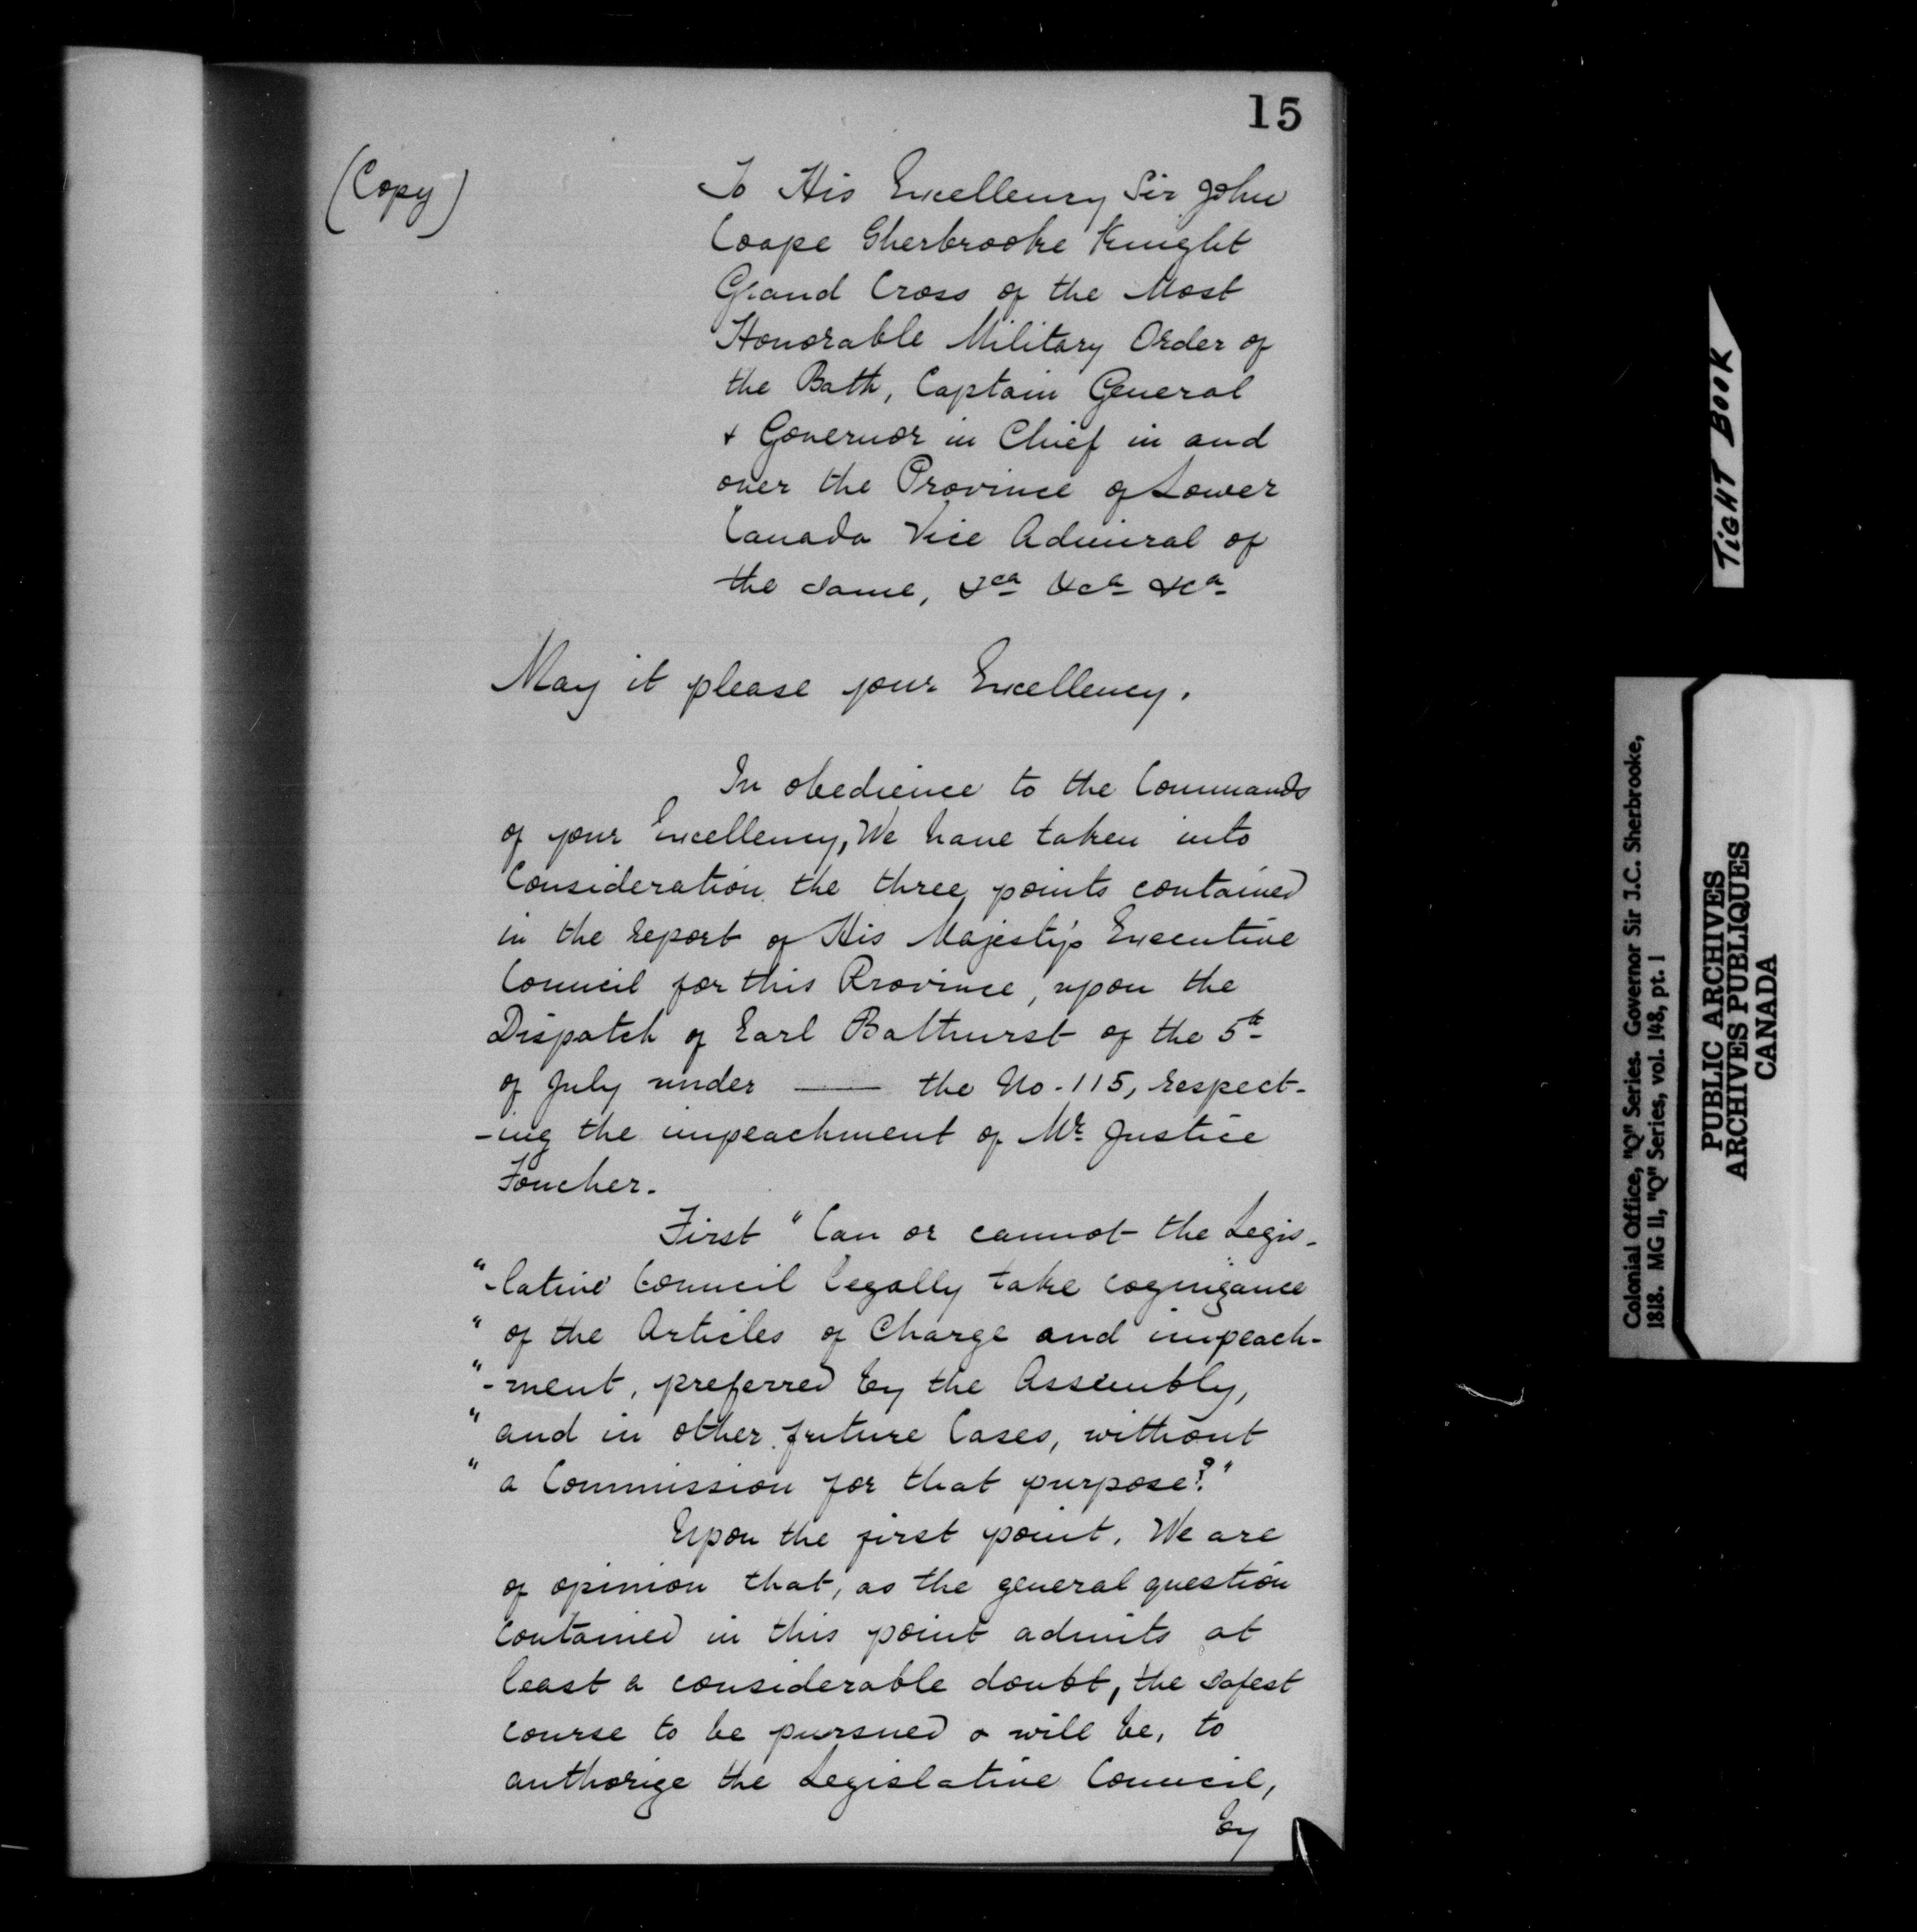 15
(Copy)
To His Excellency Sir John
Coape Sherbrooke Knight
Grand Cross of the Most
Honorable Military Order of
the Bath, Captain General
& Governor in Chief in and
over the Province of Lower
Canada Vice Admiral of
the same, &ca &ca &ca
May it please your Excellency.
In obedience to the Commands
of your Excellency, We have taken into
Consideration the three points contained
in the report of His Majesty's Executive
Council for this Province, upon the
Dispatch of Earl Bathurst of the 5th
of July under —— the No. 115, respect-
-ing the impeachment of Mr Justice
Foucher.
First "Can or cannot the Legis-
"-lative Council legally take cognizance
" of the Articles of Charge and impeach-
"-ment, preferred by the Assembly,
" and in other future Cases, without
" a Commission for that purpose?"
Upon the first point. We are
of opinion that, as the general question
contained in this point admits at
least a considerable doubt, the safest
course to be pursued & will be, to
authorize the Legislative Council,
by
TIGHT BOOK
Colonial Office, "Q" Series. Governor Sir J.C. Sherbrooke,
1818. MG 11, "Q" Series, vol. 148, pt. 1
PUBLIC ARCHIVES
ARCHIVES PUBLIQUES
CANADA